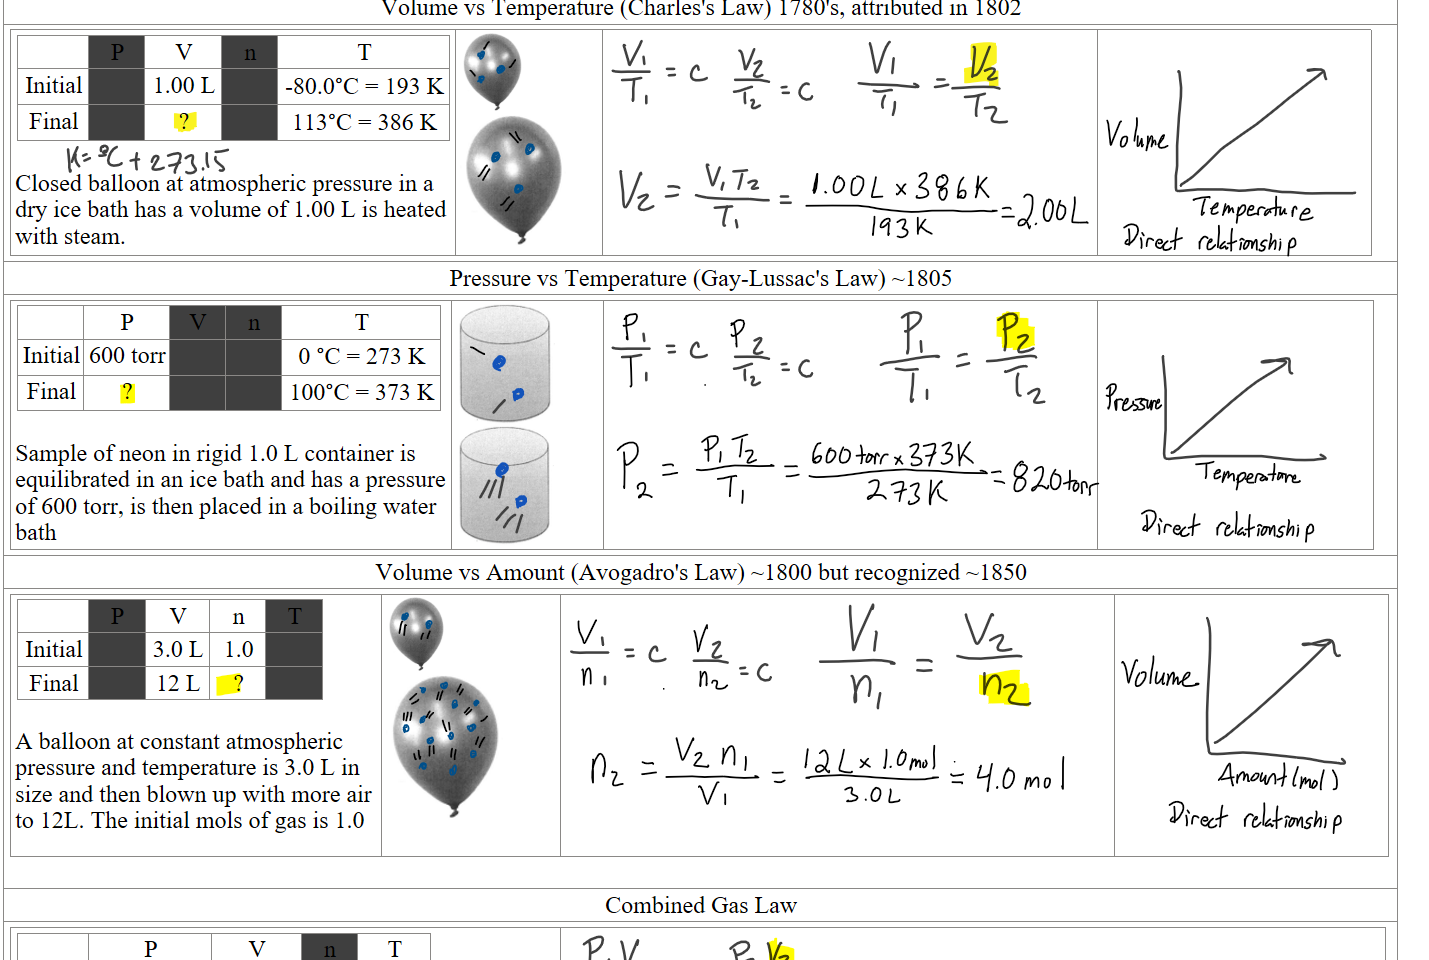 Volume vs Temperature (Charles's Law) 1780's, attributed in 1802
P V n T
Initial 1.00 L -80.0°C = 193 K
Final ? 113°C = 386 K
K = °C + 273.15
Closed balloon at atmospheric pressure in a
dry ice bath has a volume of 1.00 L is heated
with steam.
V₁/T₁ = c V₂/T₂ = c V₁/T₁ = V₂/T₂
V₂ = V₁T₂/T₁ = 1.00 L x 386 K/193 K = 2.00 L
Volume
Temperature
Direct relationship
Pressure vs Temperature (Gay-Lussac's Law) ~1805
P V n T
Initial 600 torr 0 °C = 273 K
Final ? 100°C = 373 K
Sample of neon in rigid 1.0 L container is
equilibrated in an ice bath and has a pressure
of 600 torr, is then placed in a boiling water
bath
P₁/T₁ = c P₂/T₂ = c P₁/T₁ = P₂/T₂
P₂ = P₁T₂/T₁ = 600 torr x 373K/273 K = 820 torr
Pressure
Temperature
Direct relationship
Volume vs Amount (Avogadro's Law) ~1800 but recognized ~1850
P V n T
Initial 3.0 L 1.0
Final 12 L ?
A balloon at constant atmospheric
pressure and temperature is 3.0 L in
size and then blown up with more air
to 12L. The initial mols of gas is 1.0
V₁/n₁ = c V₂/n₂ = c V₁/n₁ = V₂/n₂
n₂ = V₂n₁/V₁ = 12 L x 1.0 mol/3.0 L = 4.0 mol
Volume
Amount (mol)
Direct relationship
Combined Gas Law
P V n T